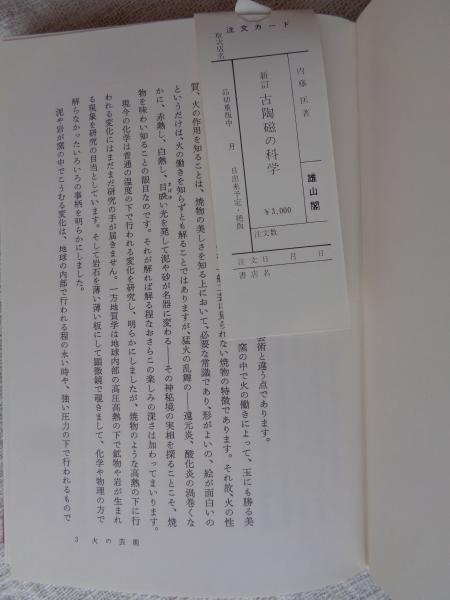 注文カード
取次店名
内藤匡著
雄山閣
新訂 古陶磁の科学
￥3,000
品切重版中 月 日出来予定・絶版
注文数
注文日 月 日
書店名
芸術と違う点であります。
窯の中で火の働きによって、玉にも勝る美
られない焼物の特徴であります。それ故、火の性
質、火の作用を知ることは、焼物の美しさを知る上において、必要な常識であり、形がよいの、絵が面白いの
というだけは、火の働きを知らずとも解ることではありますが、猛火の乱舞の――還元炎、酸化炎の渦巻くな
かに、赤熱し、白熱し、目映い光を発して泥や砂が名器に変わる――その神秘境の実相を探ることこそ、焼
まばゆ
物を味わい知ることの眼目なのです。それが解れば解る程なおさらこの楽しみの深さは加わってまいります。
現今の化学は普通の温度の下で行われる変化を研究し、明らかにしましたが、焼物のような高熱の下に行
われる変化にはまだまだ研究の手が届きません。一方地質学は地球内部の高圧高熱の下で鉱物や岩が生まれ
る現象を研究の目当としています。そして岩石を薄い薄い板にして顕微鏡で覗きまして、化学や物理の方で
解らなかったいろいろの事柄を明らかにしました。
泥や岩が窯の中でこうむる変化は、地球の内部で行われる程の永い時や、強い圧力の下で行われるもので
3 火の芸術